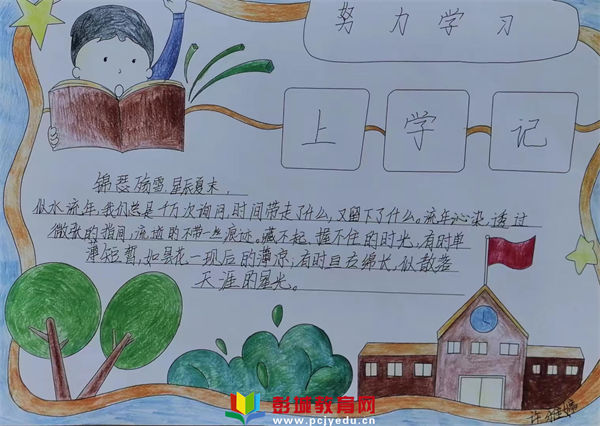 努力学习
上学记
锦瑟殇雪,星辰夏末,
似水流年,我们总是千万次询问,时间带走了什么,又留下了什么。流年沁染,透过
微张的指间,流逝的不带一丝痕迹。藏不起、握不住的时光,有时单
薄短暂,如昙花一现后的薄凉,有时亘古绵长,似散落
天涯的星光。
彭城教育网
www.pcjyedu.cn